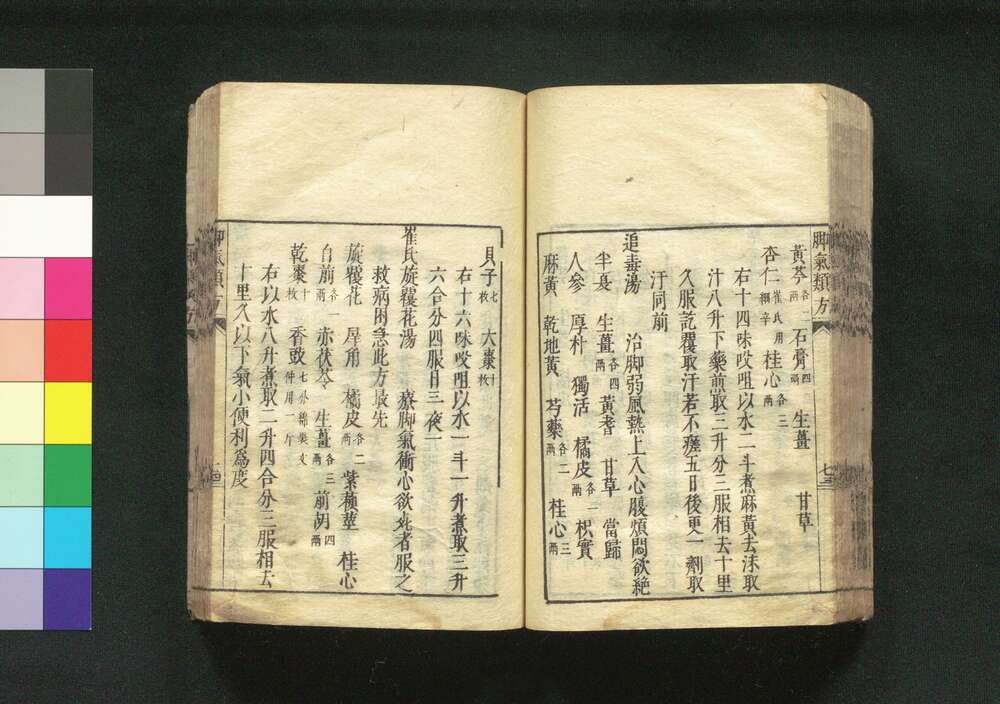 脚氣類方
黃芩各一兩 石膏四兩 生薑 甘草
杏仁崔氏用細辛 桂心各三兩
右十四味㕮咀以水二斗煮麻黃去沫取
汁八升下藥煎取三升分三服相去十里
久服訖覆取汗若不瘥五日後更一劑取
汗同前
追毒湯 治脚弱風熱上入心腹煩悶欲絶
半夏 生薑各四兩 黃耆 甘草 當歸
人參 厚朴 獨活 橘皮各一兩 枳實
麻黃 乾地黃 芍藥各二兩 桂心三兩
貝子七枚 大棗十枚
右十六味㕮咀以水一斗一升煮取三升
六合分四服日三夜一
崔氏旋覆花湯 療脚氣衝心欲死者服之
救病困急此方最先
旋覆花 犀角 橘皮各二兩 紫蘓莖 桂心
白前各一兩 赤茯苓 生薑各三兩 前胡四兩
乾棗十枚 香豉七分綿裹文仲用一斤
右以水八升煮取二升四合分三服相去
十里久以下氣小便利爲度